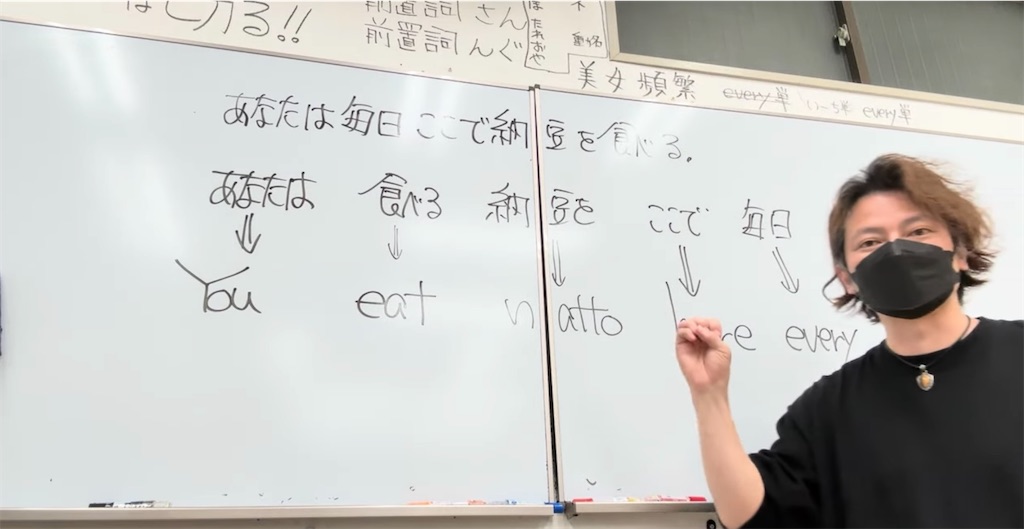 前置詞 さん
前置詞 んぐ
美女 頻繁 every単 いーち単 every単
あなたは毎日ここで納豆を食べる。
あなたは 食べる 納豆を ここで 毎日
You eat natto every